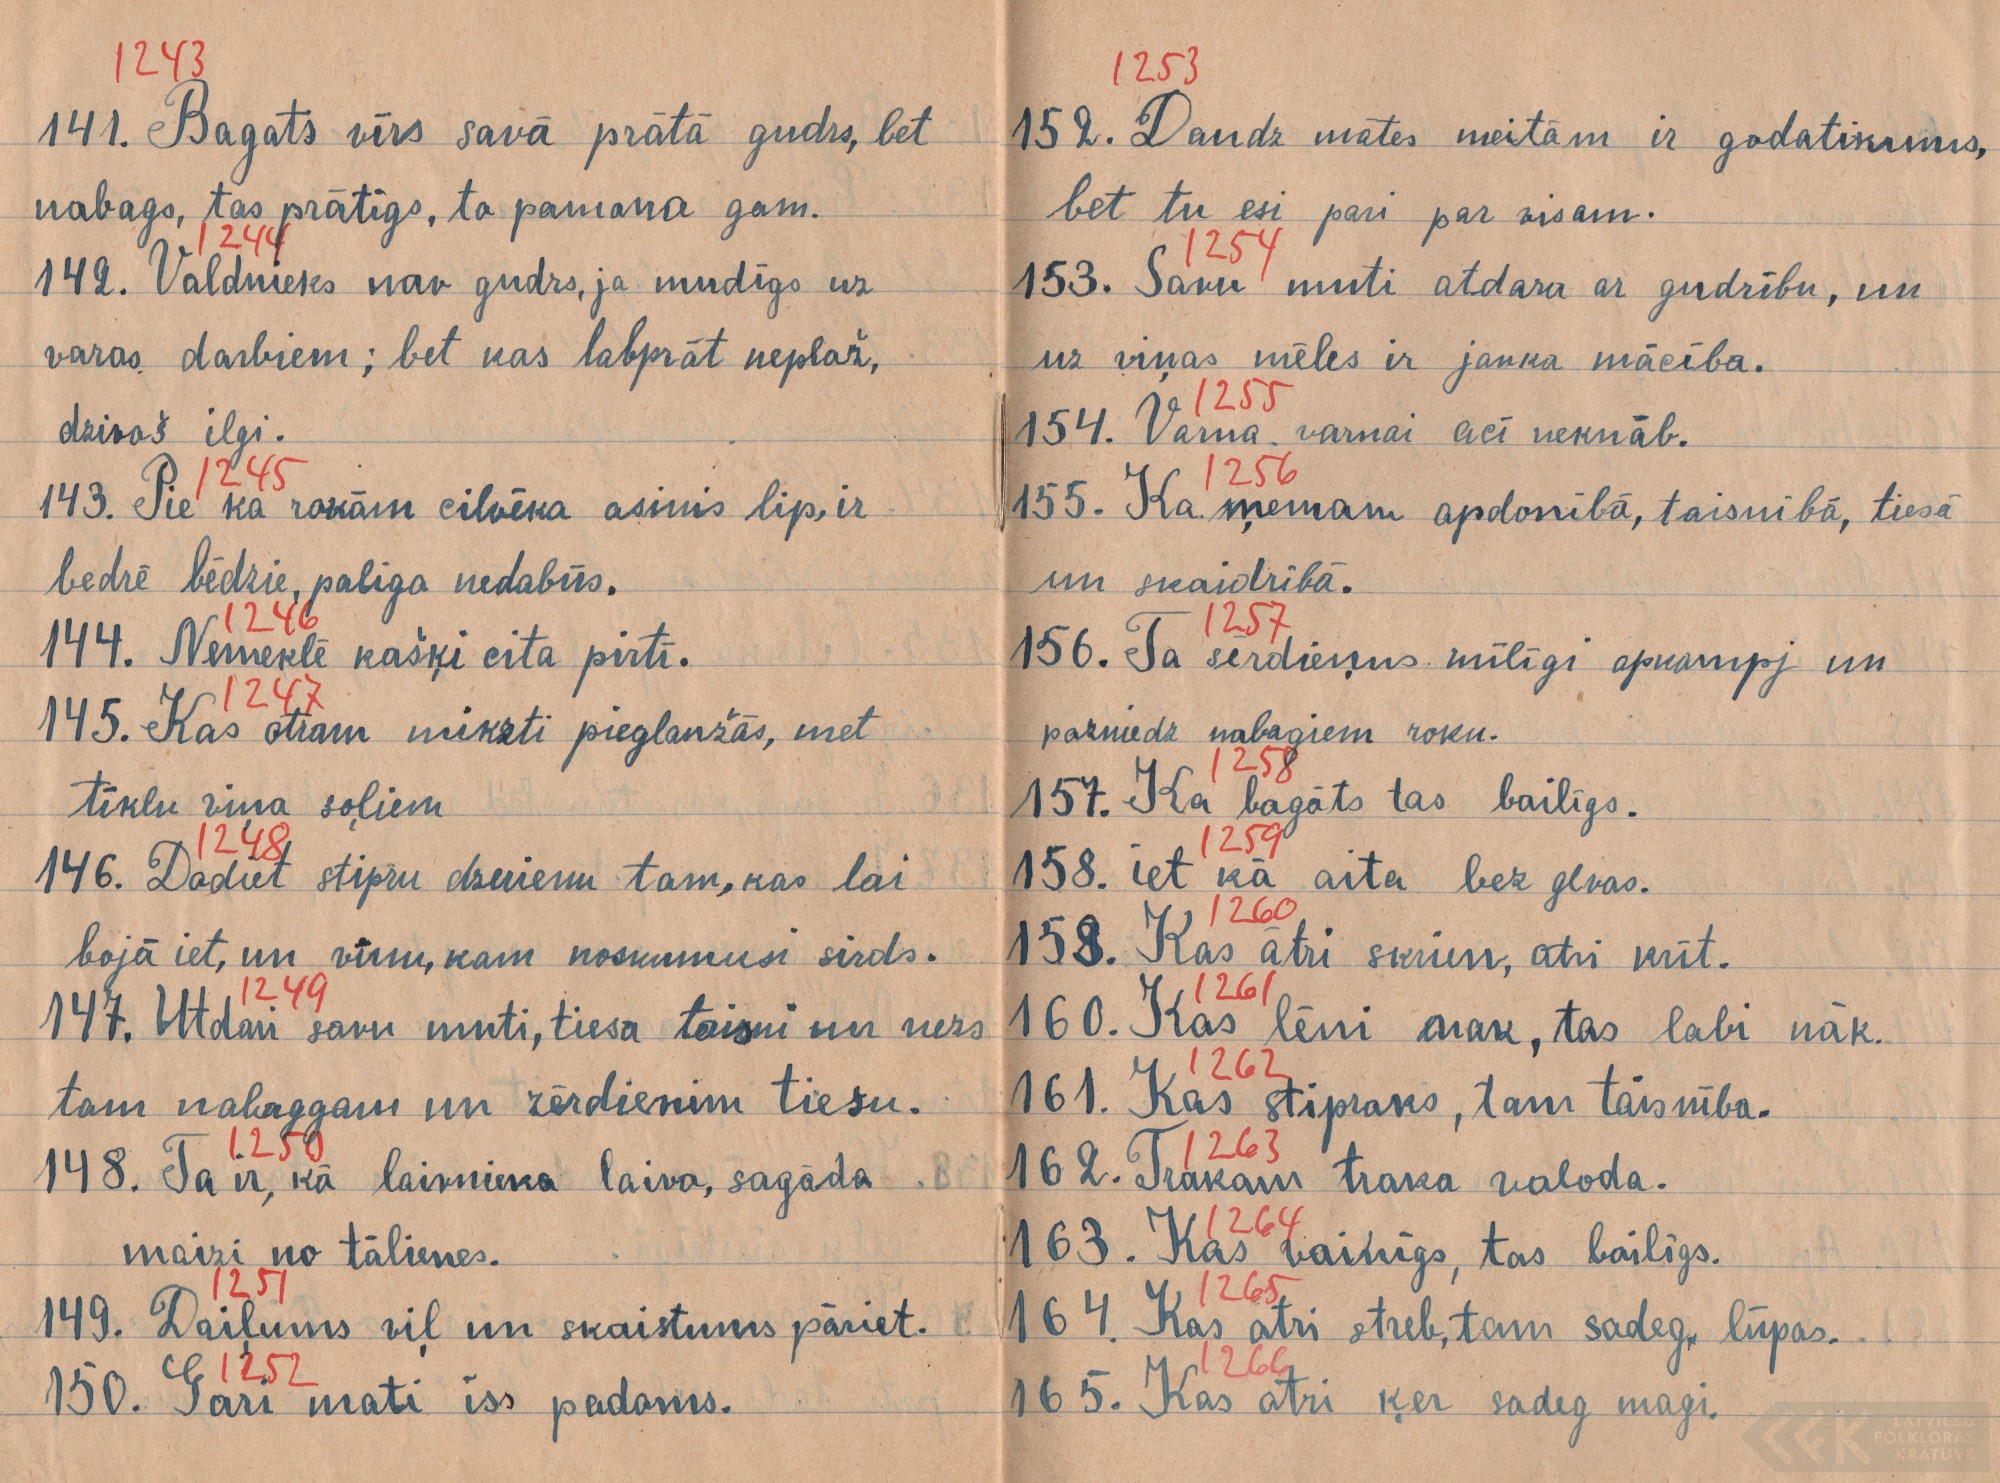 1243
141. Bagats vīrs savā prātā gudrs, bet
nabags, tas prātīgs, to pamana gam.
1244
142. Valdnieks nav gudrs, ja mudīgs uz
varas darbiem; bet kas labprāt neplaž,
dzivoš ilgi.
1245
143. Pie ka rokām cilvēka asinis lip, ir
bedrē bēdzie, paliga nedabūs.
1246
144. Nemeklē kašķi cita pirtī.
1247
145. Kas otram mikzti pieglanžās, met
tīklu viņa soļiem
1248
146. Dodiet stipru dzeienu tam, kas lai
bojā iet, un vīnu, kam noskumusi sirds.
1249
147. Utdari savu muti, tiesa taisni un ness
tam nabaggam un zērdienim tiesu.
1250
148. Ta ir, kā laivnieka laiva, sagāda
maizi no tālienes.
1251
149. Daiļums viļ un skaistums pāriet.
1252
150. Gari mati īss padoms.
1253
152. Daudz mātes meitām ir godatikums,
bet tu esi pari par visam.
1254
153. Savu muti atdara ar gudrību, un
uz viņas mēles ir jauka mācība.
1255
154. Varna varnai acī neknāb.
1256
155. Ka ņemam apdonībā, taisnībā, tiesā
un skaidrībā.
1257
156. Ta sērdieņus mīlīgi apkampj un
pazniedz nabagiem roku.
1258
157. Ka bagāts tas bailīgs.
1259
158. iet kā aita bez glvas.
1260
159. Kas ātri skrien, atri krīt.
1261
160. Kas lēni nak, tas labi nāk.
1262
161. Kas stipraks, tam tāisnība.
1263
162. Trakam traka valoda.
1264
163. Kas vainīgs, tas bailīgs.
1265
164. Kas atri streb, tam sadeg lūpas.
1266
165. Kas atri ķer sadeg nagi.
LATVIEŠU
FOLKLORAS
KRĀTUVE